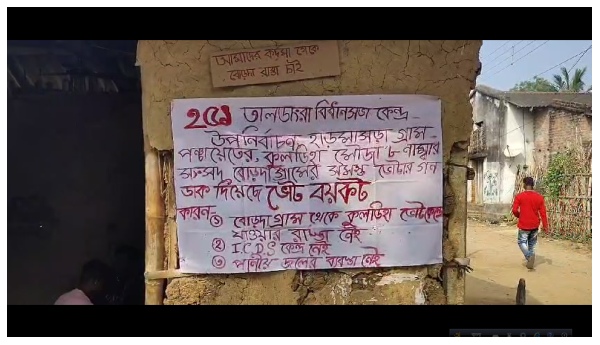 আমাদের কদমা থেকে
বোড়দা রাস্তা চাই
২৫১ তালডাংরা বিধানসভা কেন্দ্র
উপনির্বাচন, হাড়মাসড়া গ্রাম
পঞ্চায়েতের, কুলডিহা মৌজা ৮ নাম্বার
সংসদ, বোড়দা গ্রামের সমস্ত ভোটার গন
ডাক দিয়েছে ভোট বয়কট
কারন- ① বোড়দা গ্রাম থেকে কুলডিহা ভোট কেন্দ্রে
যাওয়ার রাস্তা নেই
② I.C.D.S কেন্দ্র নেই
③ পানীয় জলের ব্যবস্থা নেই